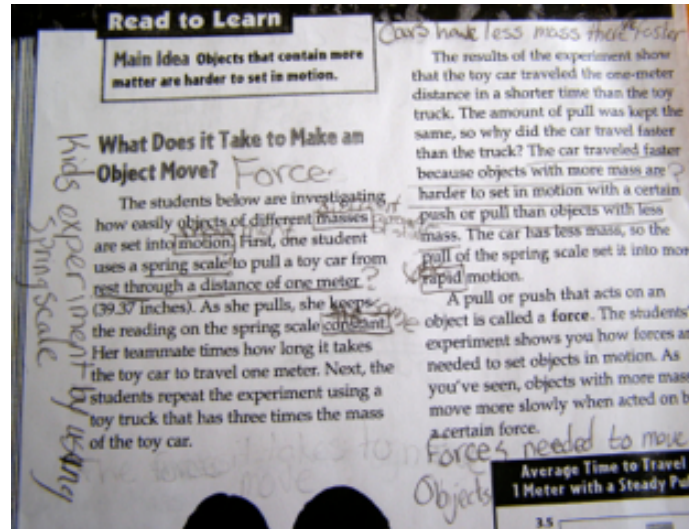 Read to Learn
Main Idea Objects that contain more
matter are harder to set in motion.
Kids experiment by using
Spring Scale
What Does it Take to Make an
Object Move? Force
The students below are investigating
how easily objects of different masses
are set into motion. First, one student
uses a spring scale to pull a toy car from
rest through a distance of one meter ?
(39.37 inches). As she pulls, she keeps
the reading on the spring scale constant.
Her teammate times how long it takes
the toy car to travel one meter. Next, the
students repeat the experiment using a
toy truck that has three times the mass
of the toy car.
move
Cars have less mass faster
The results of the experiment show
that the toy car traveled the one-meter
distance in a shorter time than the toy
truck. The amount of pull was kept the
same, so why did the car travel faster
than the truck? The car traveled faster
because objects with more mass are ?
harder to set in motion with a certain
push or pull than objects with less
mass. The car has less mass, so the
pull of the spring scale set it into more
rapid motion.
A pull or push that acts on an
object is called a force. The students'
experiment shows you how forces
needed to set objects in motion. As
you've seen, objects with more mass
move more slowly when acted on
a certain force.
Forces needed to move
Objects
Average Time to Travel
1 Meter with a Steady
3.5